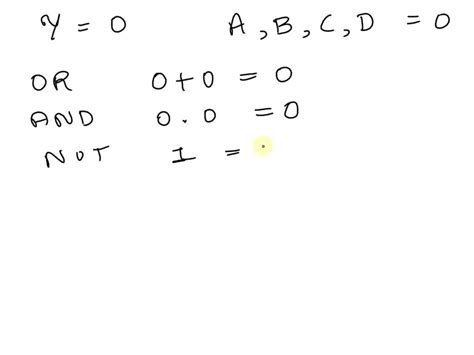 Y = 0 A, B, C, D = 0
OR 0+0 = 0
AND 0.0 = 0
NOT 1 =